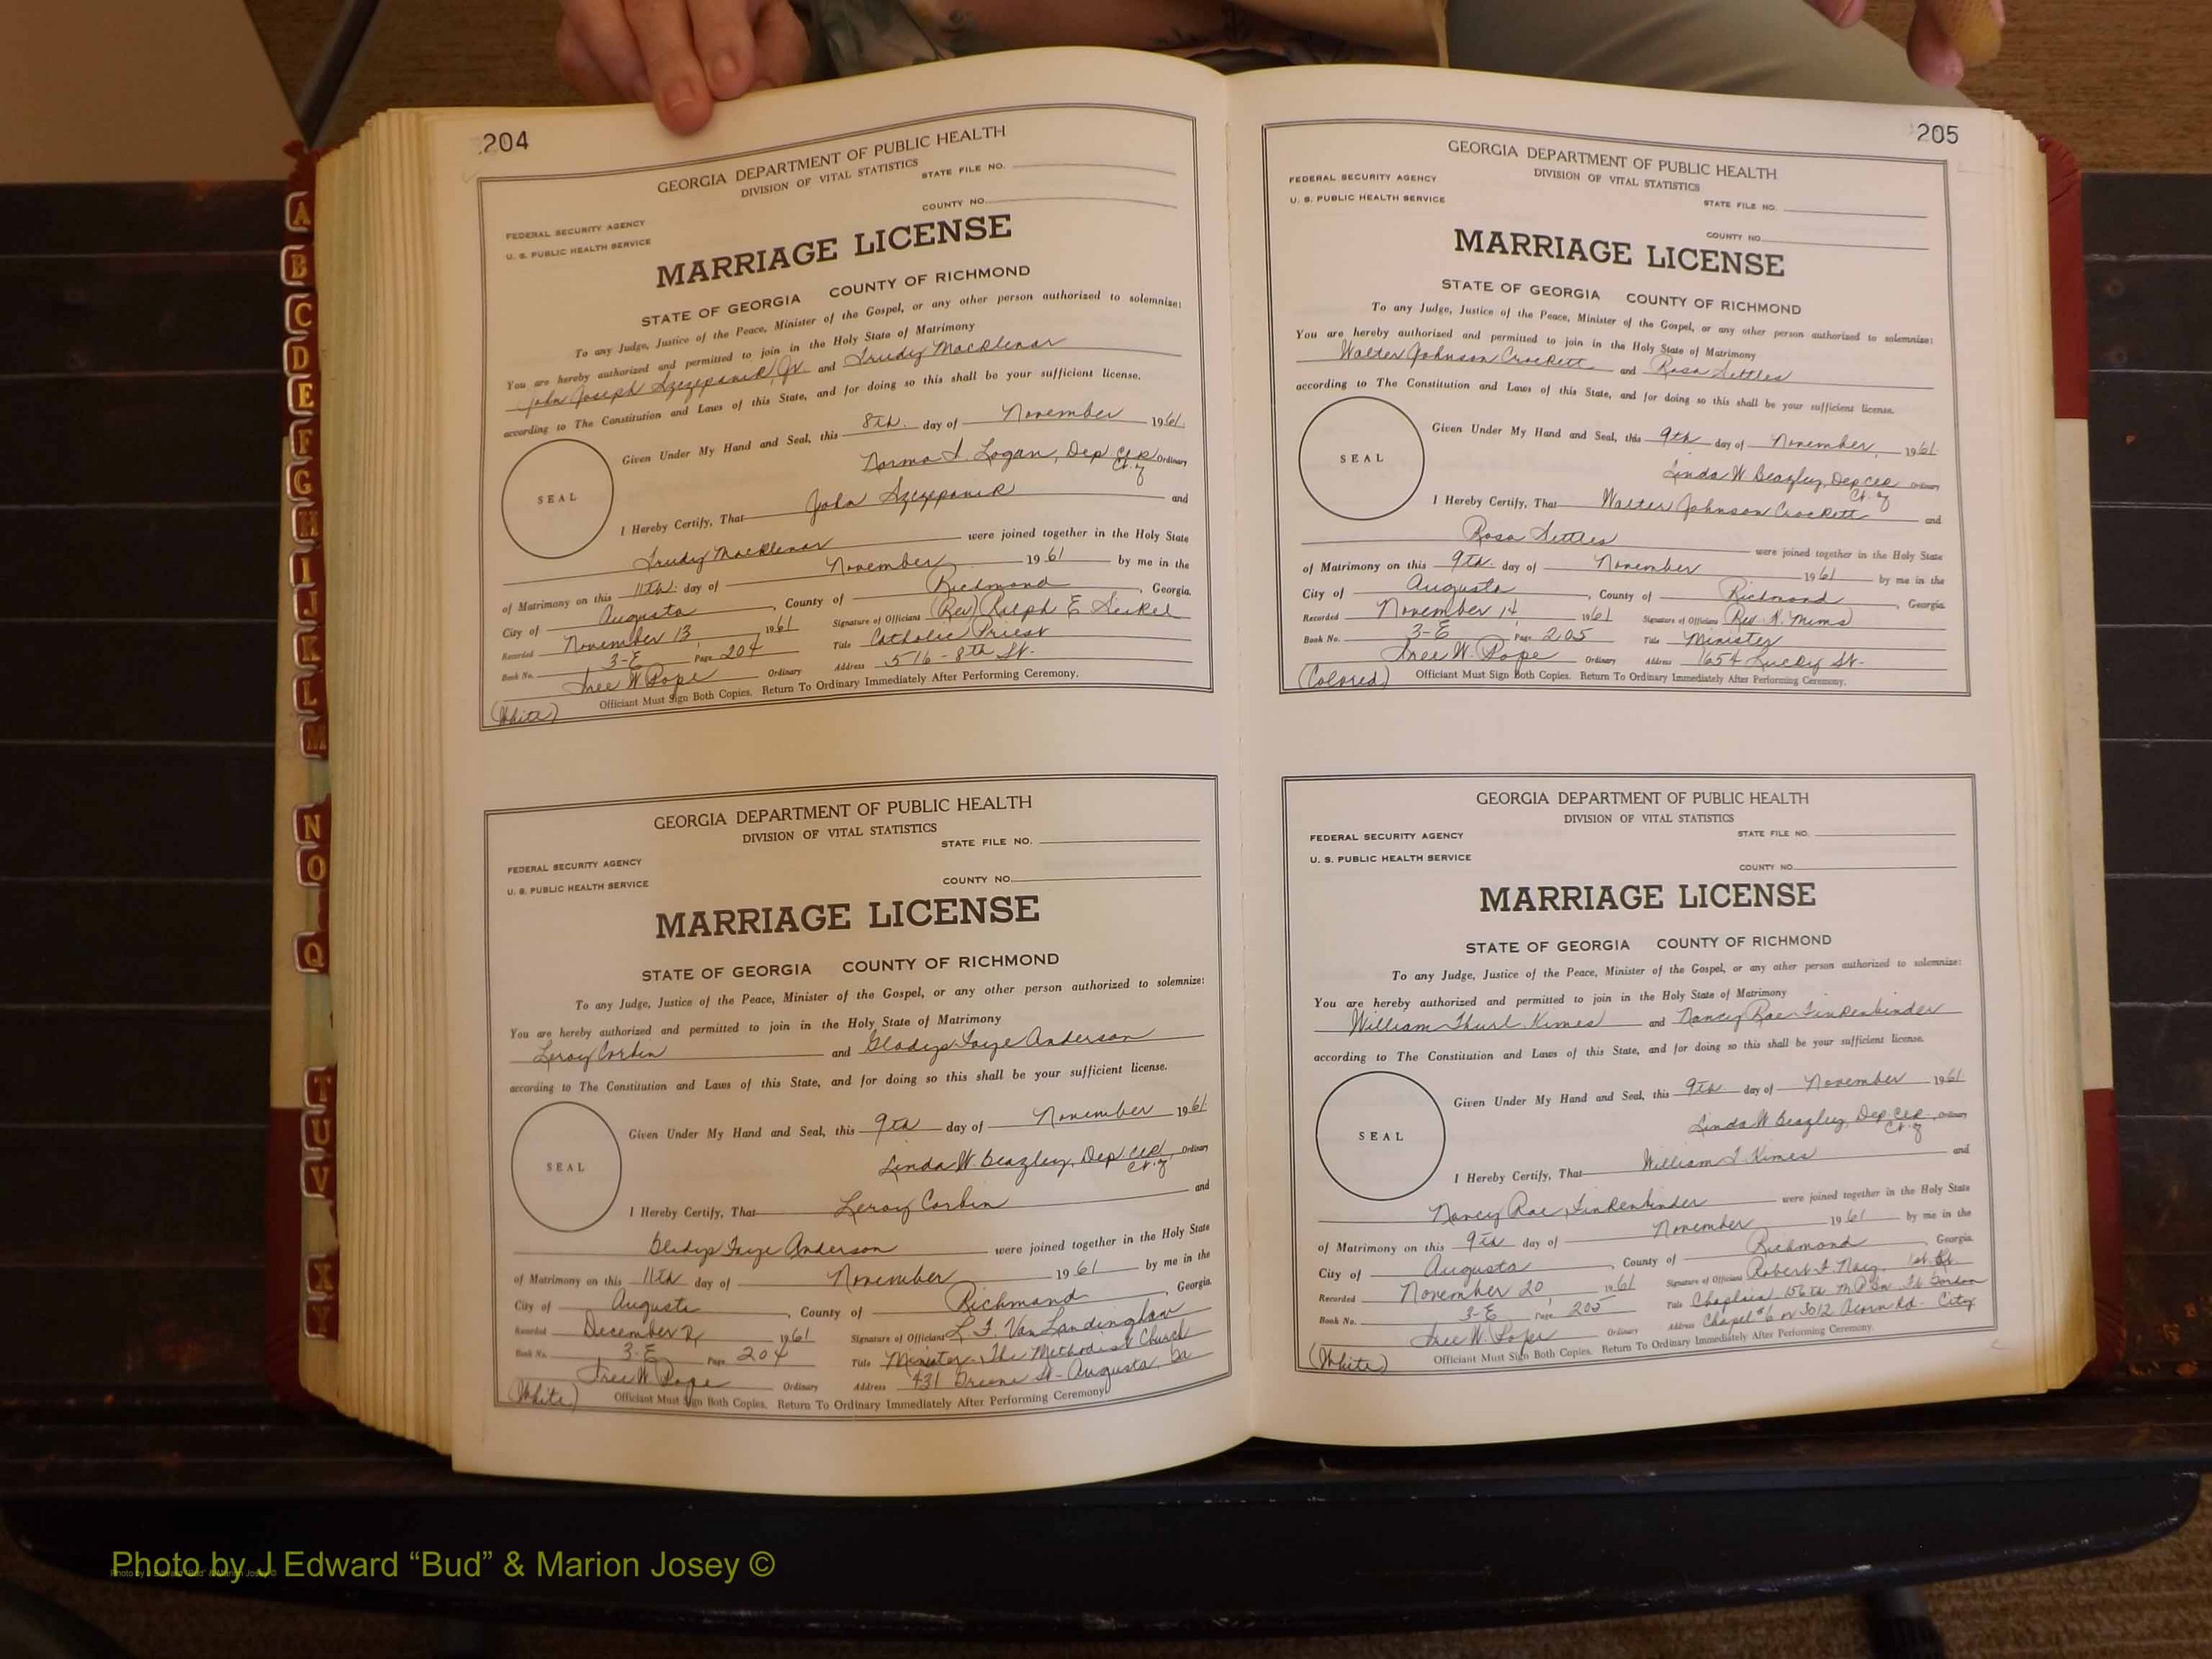 204
GEORGIA DEPARTMENT OF PUBLIC HEALTH
DIVISION OF VITAL STATISTICS
STATE FILE NO.
COUNTY NO.
FEDERAL SECURITY AGENCY
U. S. PUBLIC HEALTH SERVICE
MARRIAGE LICENSE
STATE OF GEORGIA COUNTY OF RICHMOND
To any Judge, Justice of the Peace, Minister of the Gospel, or any other person authorized to solemnize:
You are hereby authorized and permitted to join in the Holy State of Matrimony
John Joseph Szczepanik, Jr. and Trudy
according to The Constitution and Laws of this State, and for doing so this shall be your sufficient license.
Given Under My Hand and Seal, this 8th. day of November 1961.
Norma I. Logan, Dep Clk Ordinary
Ct. of
SEAL
I Hereby Certify, That John Szczepanik and
Trudy were joined together in the Holy State
of Matrimony on this 11th. day of November 1961 by me in the
City of Augusta, County of Richmond, Georgia.
Recorded November 13 1961 Signature of Officiant (Rev) Ralph E Seikel
Book No. 3-E Page 204 Title Catholic Priest
Tree W. Pope Ordinary Address 516-8th St.
(White) Officiant Must Sign Both Copies. Return To Ordinary Immediately After Performing Ceremony.
GEORGIA DEPARTMENT OF PUBLIC HEALTH
DIVISION OF VITAL STATISTICS
STATE FILE NO.
COUNTY NO.
FEDERAL SECURITY AGENCY
U. S. PUBLIC HEALTH SERVICE
MARRIAGE LICENSE
STATE OF GEORGIA COUNTY OF RICHMOND
To any Judge, Justice of the Peace, Minister of the Gospel, or any other person authorized to solemnize:
You are hereby authorized and permitted to join in the Holy State of Matrimony
Leroy Corbin and Gladys Faye Anderson
according to The Constitution and Laws of this State, and for doing so this shall be your sufficient license.
Given Under My Hand and Seal, this 9th day of November 1961.
Linda W. Beazley, Dep Clk, Ordinary
Ct. of
SEAL
I Hereby Certify, That Leroy Corbin and
Gladys Faye Anderson were joined together in the Holy State
of Matrimony on this 11th day of November 1961 by me in the
City of Augusta, County of Richmond Georgia.
Recorded December 2, 1961 Signature of Officiant L. F. VanLandingham
Book No. 3-E Page 204 Title Minister-The Methodist Church
Tree W. Pope Ordinary Address 431 Greene St-Augusta, Ga
(White) Officiant Must Sign Both Copies. Return To Ordinary Immediately After Performing Ceremony.
205
GEORGIA DEPARTMENT OF PUBLIC HEALTH
DIVISION OF VITAL STATISTICS
FEDERAL SECURITY AGENCY
U. S. PUBLIC HEALTH SERVICE
STATE FILE NO.
COUNTY NO.
MARRIAGE LICENSE
STATE OF GEORGIA COUNTY OF RICHMOND
To any Judge, Justice of the Peace, Minister of the Gospel, or any other person authorized to solemnize:
You are hereby authorized and permitted to join in the Holy State of Matrimony
Walter Johnson Crockett and Rosa Settles
according to The Constitution and Laws of this State, and for doing so this shall be your sufficient license.
Given Under My Hand and Seal, this 9th day of November, 1961.
Linda W Beazley, Dep Clk Ordinary
Ct. of
SEAL
I Hereby Certify, That Walter Johnson Crockett and
Rosa Settles were joined together in the Holy State
of Matrimony on this 9th. day of November 1961 by me in the
City of Augusta, County of Richmond, Georgia.
Recorded November 14, 1961 Signature of Officiant Rev. R. Mims
Book No. 3-E Page 205 Title Minister
Tree W. Pope Ordinary Address 1654 Luckey St-
(Colored) Officiant Must Sign Both Copies. Return To Ordinary Immediately After Performing Ceremony.
GEORGIA DEPARTMENT OF PUBLIC HEALTH
DIVISION OF VITAL STATISTICS
FEDERAL SECURITY AGENCY
STATE FILE NO.
U. S. PUBLIC HEALTH SERVICE
COUNTY NO.
MARRIAGE LICENSE
STATE OF GEORGIA COUNTY OF RICHMOND
To any Judge, Justice of the Peace, Minister of the Gospel, or any other person authorized to solemnize:
You are hereby authorized and permitted to join in the Holy State of Matrimony
William Thurl Kimes and Nancy Rae Finkenbinder
according to The Constitution and Laws of this State, and for doing so this shall be your sufficient license.
Given Under My Hand and Seal, this 9th. day of November 1961.
Linda W Beazley, Dep Clk, Ordinary
Ct. of
SEAL
I Hereby Certify, That William T. Kimes and
Nancy Rae Finkenbinder were joined together in the Holy State
of Matrimony on this 9th day of November 1961 by me in the
City of Augusta, County of Richmond, Georgia.
Recorded November 20, 1961 Signature of Officiant Robert F. 1st Lt
Book No. 3-E Page 205 Title Chaplain 156th M P Bn Ft Gordon
Tree W. Pope Ordinary Address Chapel #6 or 3012 Acorn Rd- City
(White) Officiant Must Sign Both Copies. Return To Ordinary Immediately After Performing Ceremony.
A
B
C
D
E
F
G
H
I
J
K
L
M
N
O
Q
T
U
V
X
Y
Photo by J Edward “Bud” & Marion Josey ©
Photo by J Edward "Bud" & Marion Josey ©